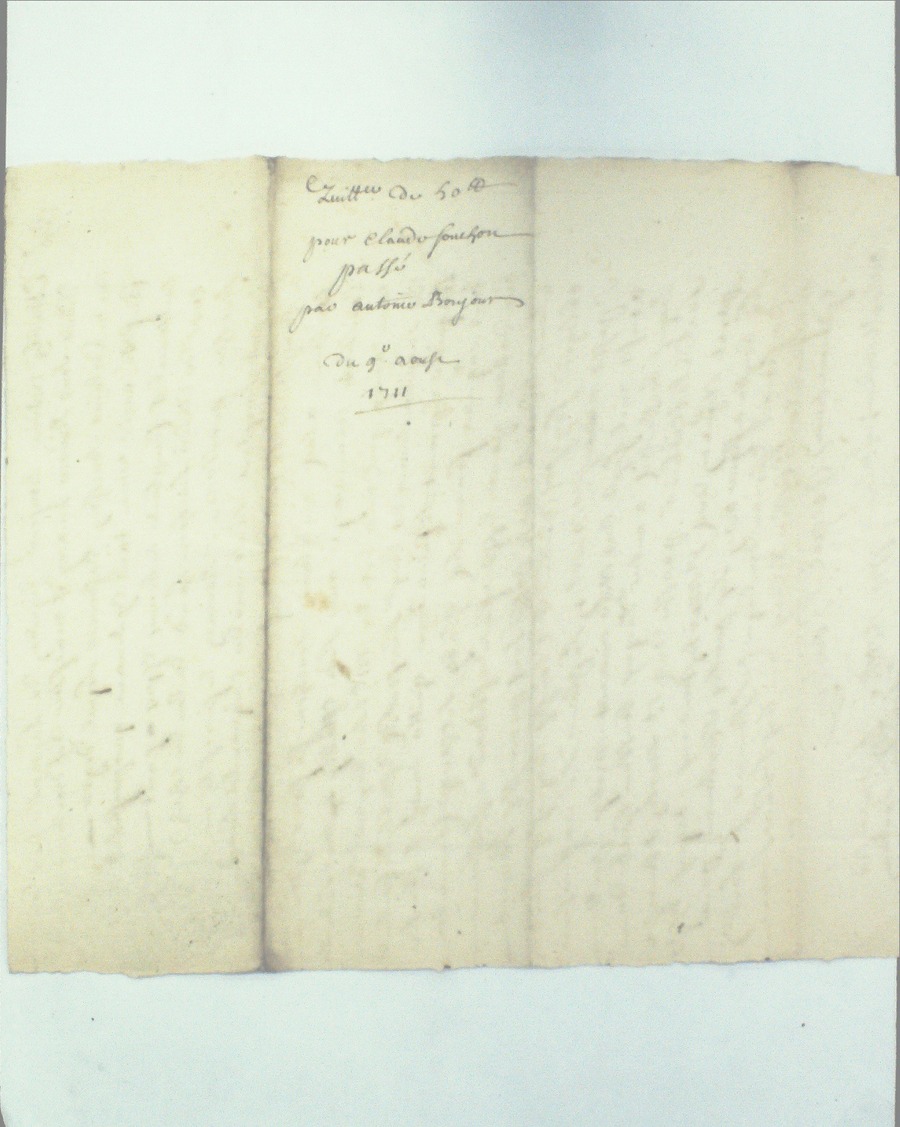 Quittce de 50lt
pour Claude Souchon
passé
par antoine Bonjour
du 9e aoust
1711